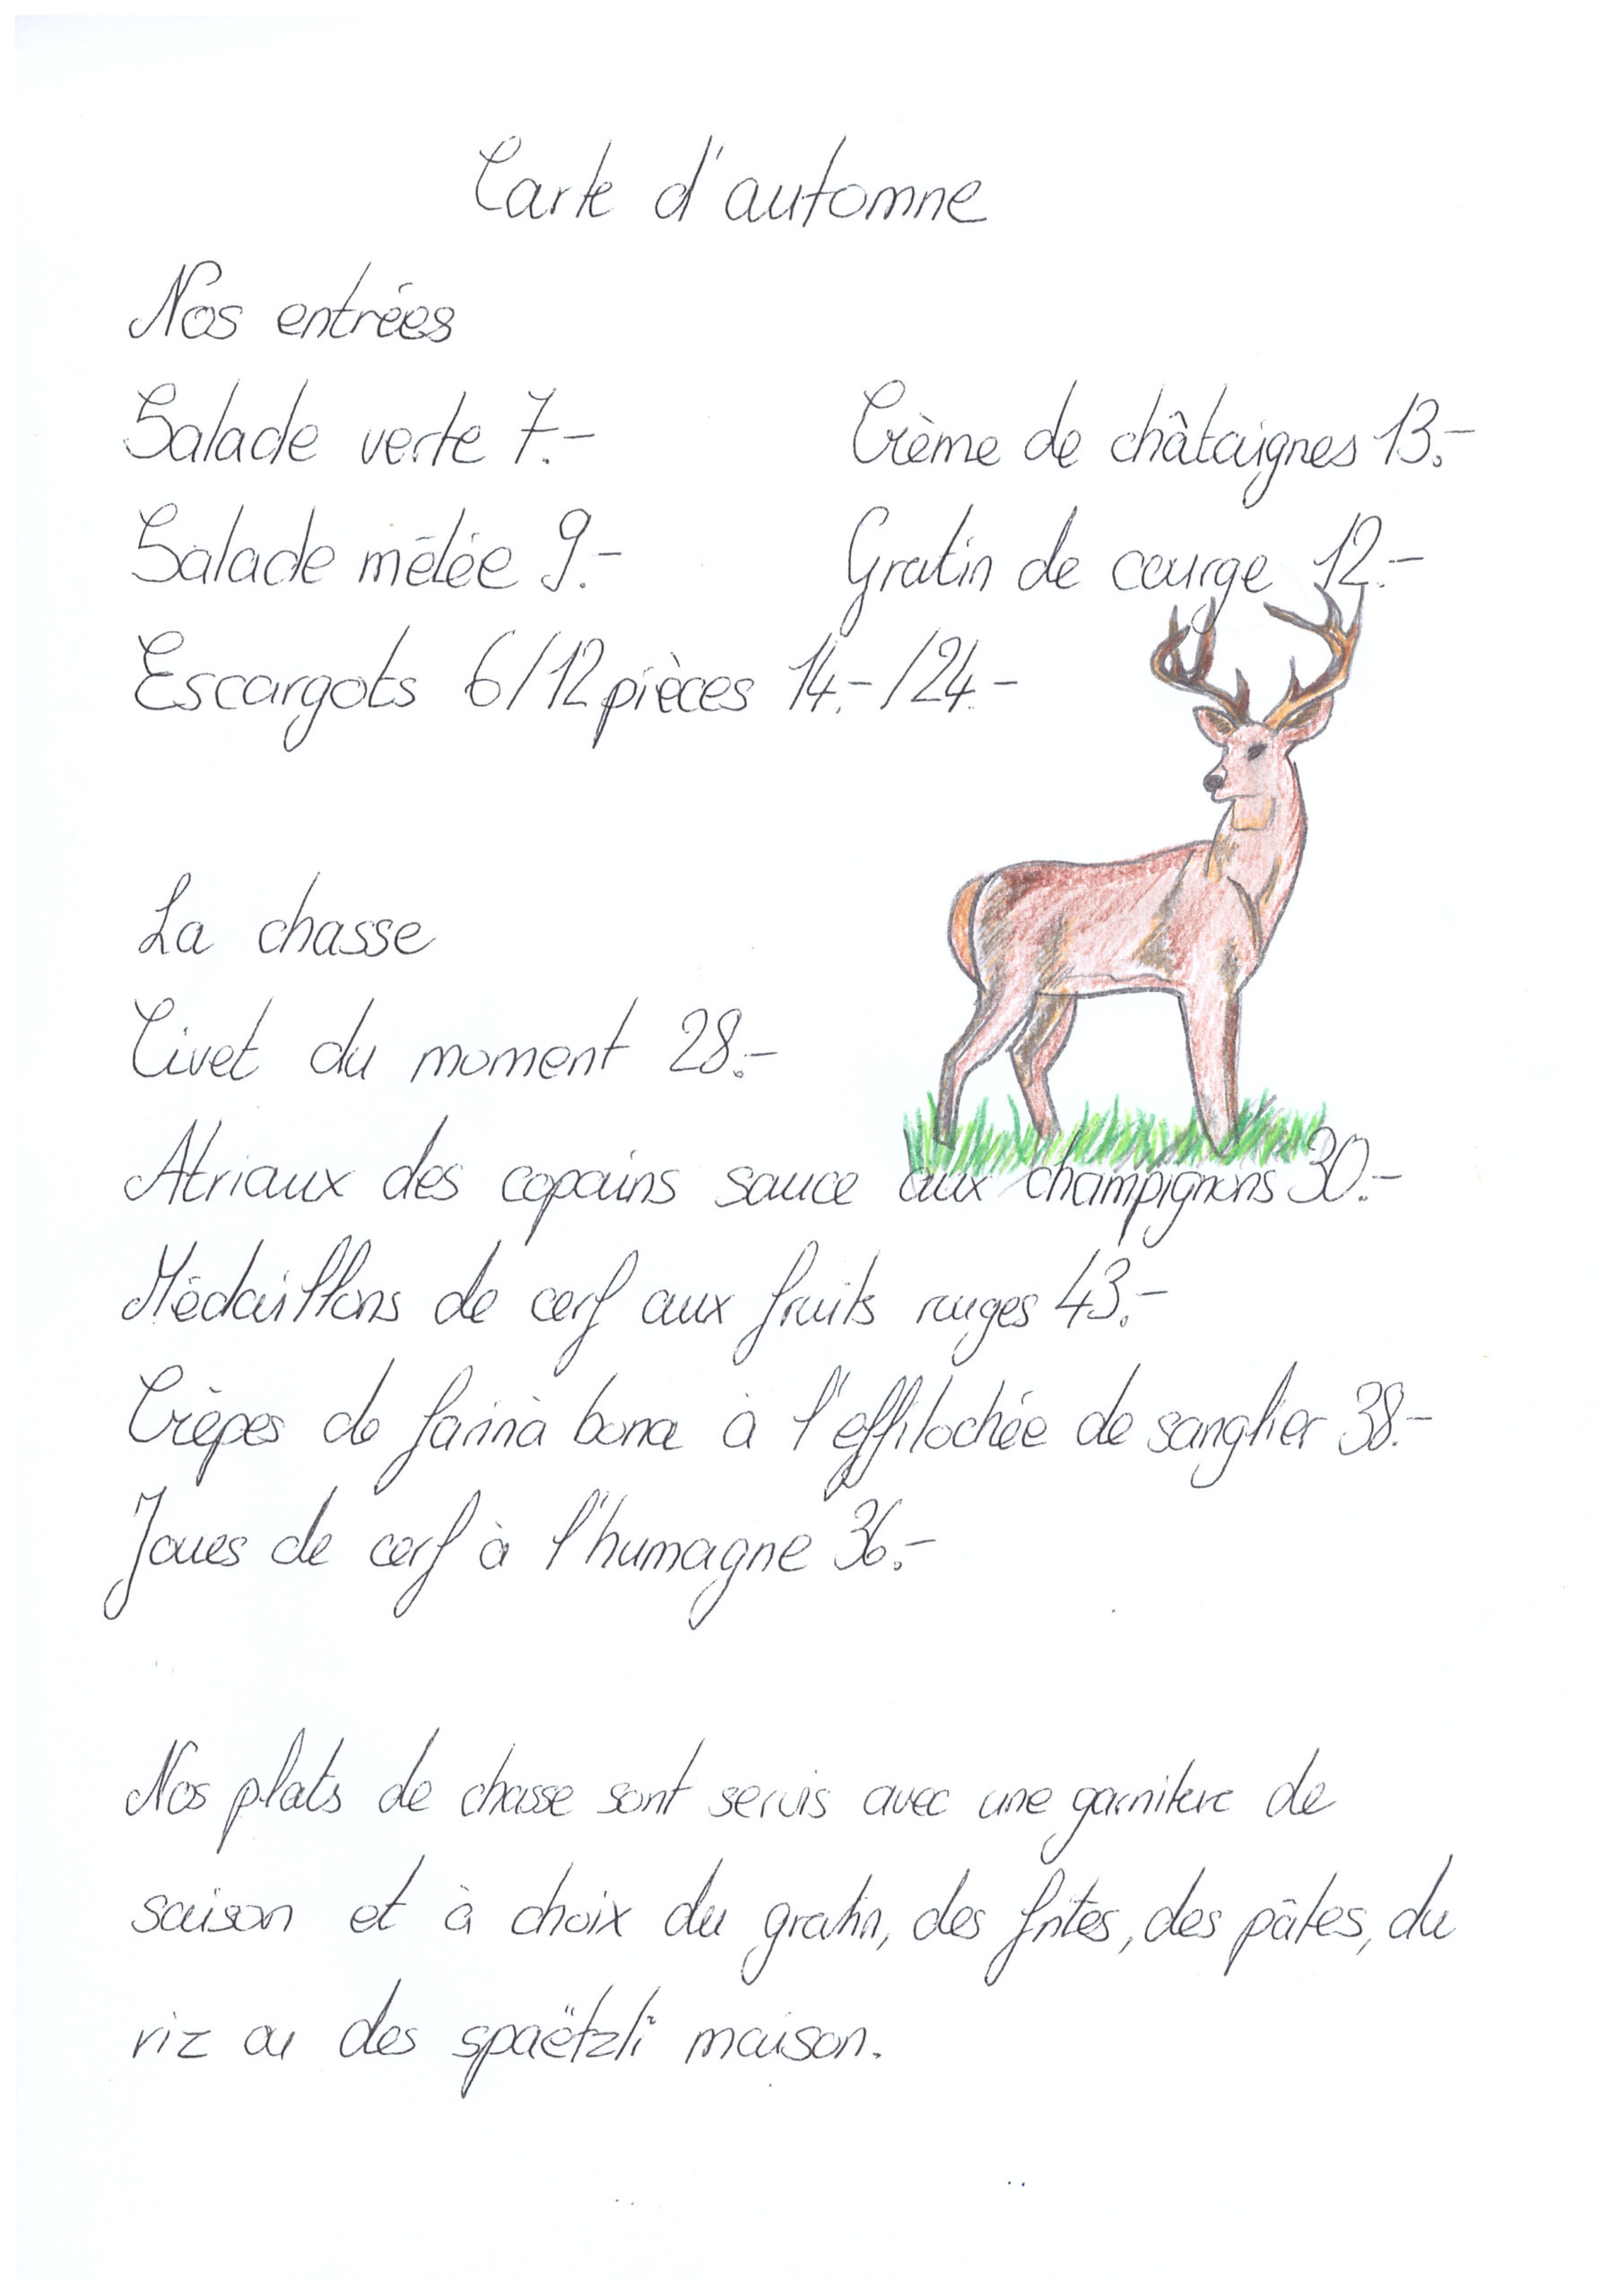 Carte d'automne
Nos entrées
Salade verte 7.-
Crème de châtaignes 13.-
Salade mêlée 9.-
Gratin de courge 12.-
Escargots 6/12 pièces 14.-/24.-
La chasse
Civet du moment 28.-
Atriaux des copains sauce aux champignons 30.-
Médaillons de cerf aux fruits rouges 43.-
Crêpes de farinà bona à l'effilochée de sanglier 38.-
Joues de cerf à l'humagne 36.-
Nos plats de chasse sont servis avec une garniture de
saison et à choix du gratin, des frites, des pâtes, du
riz ou des spaëtzli maison.